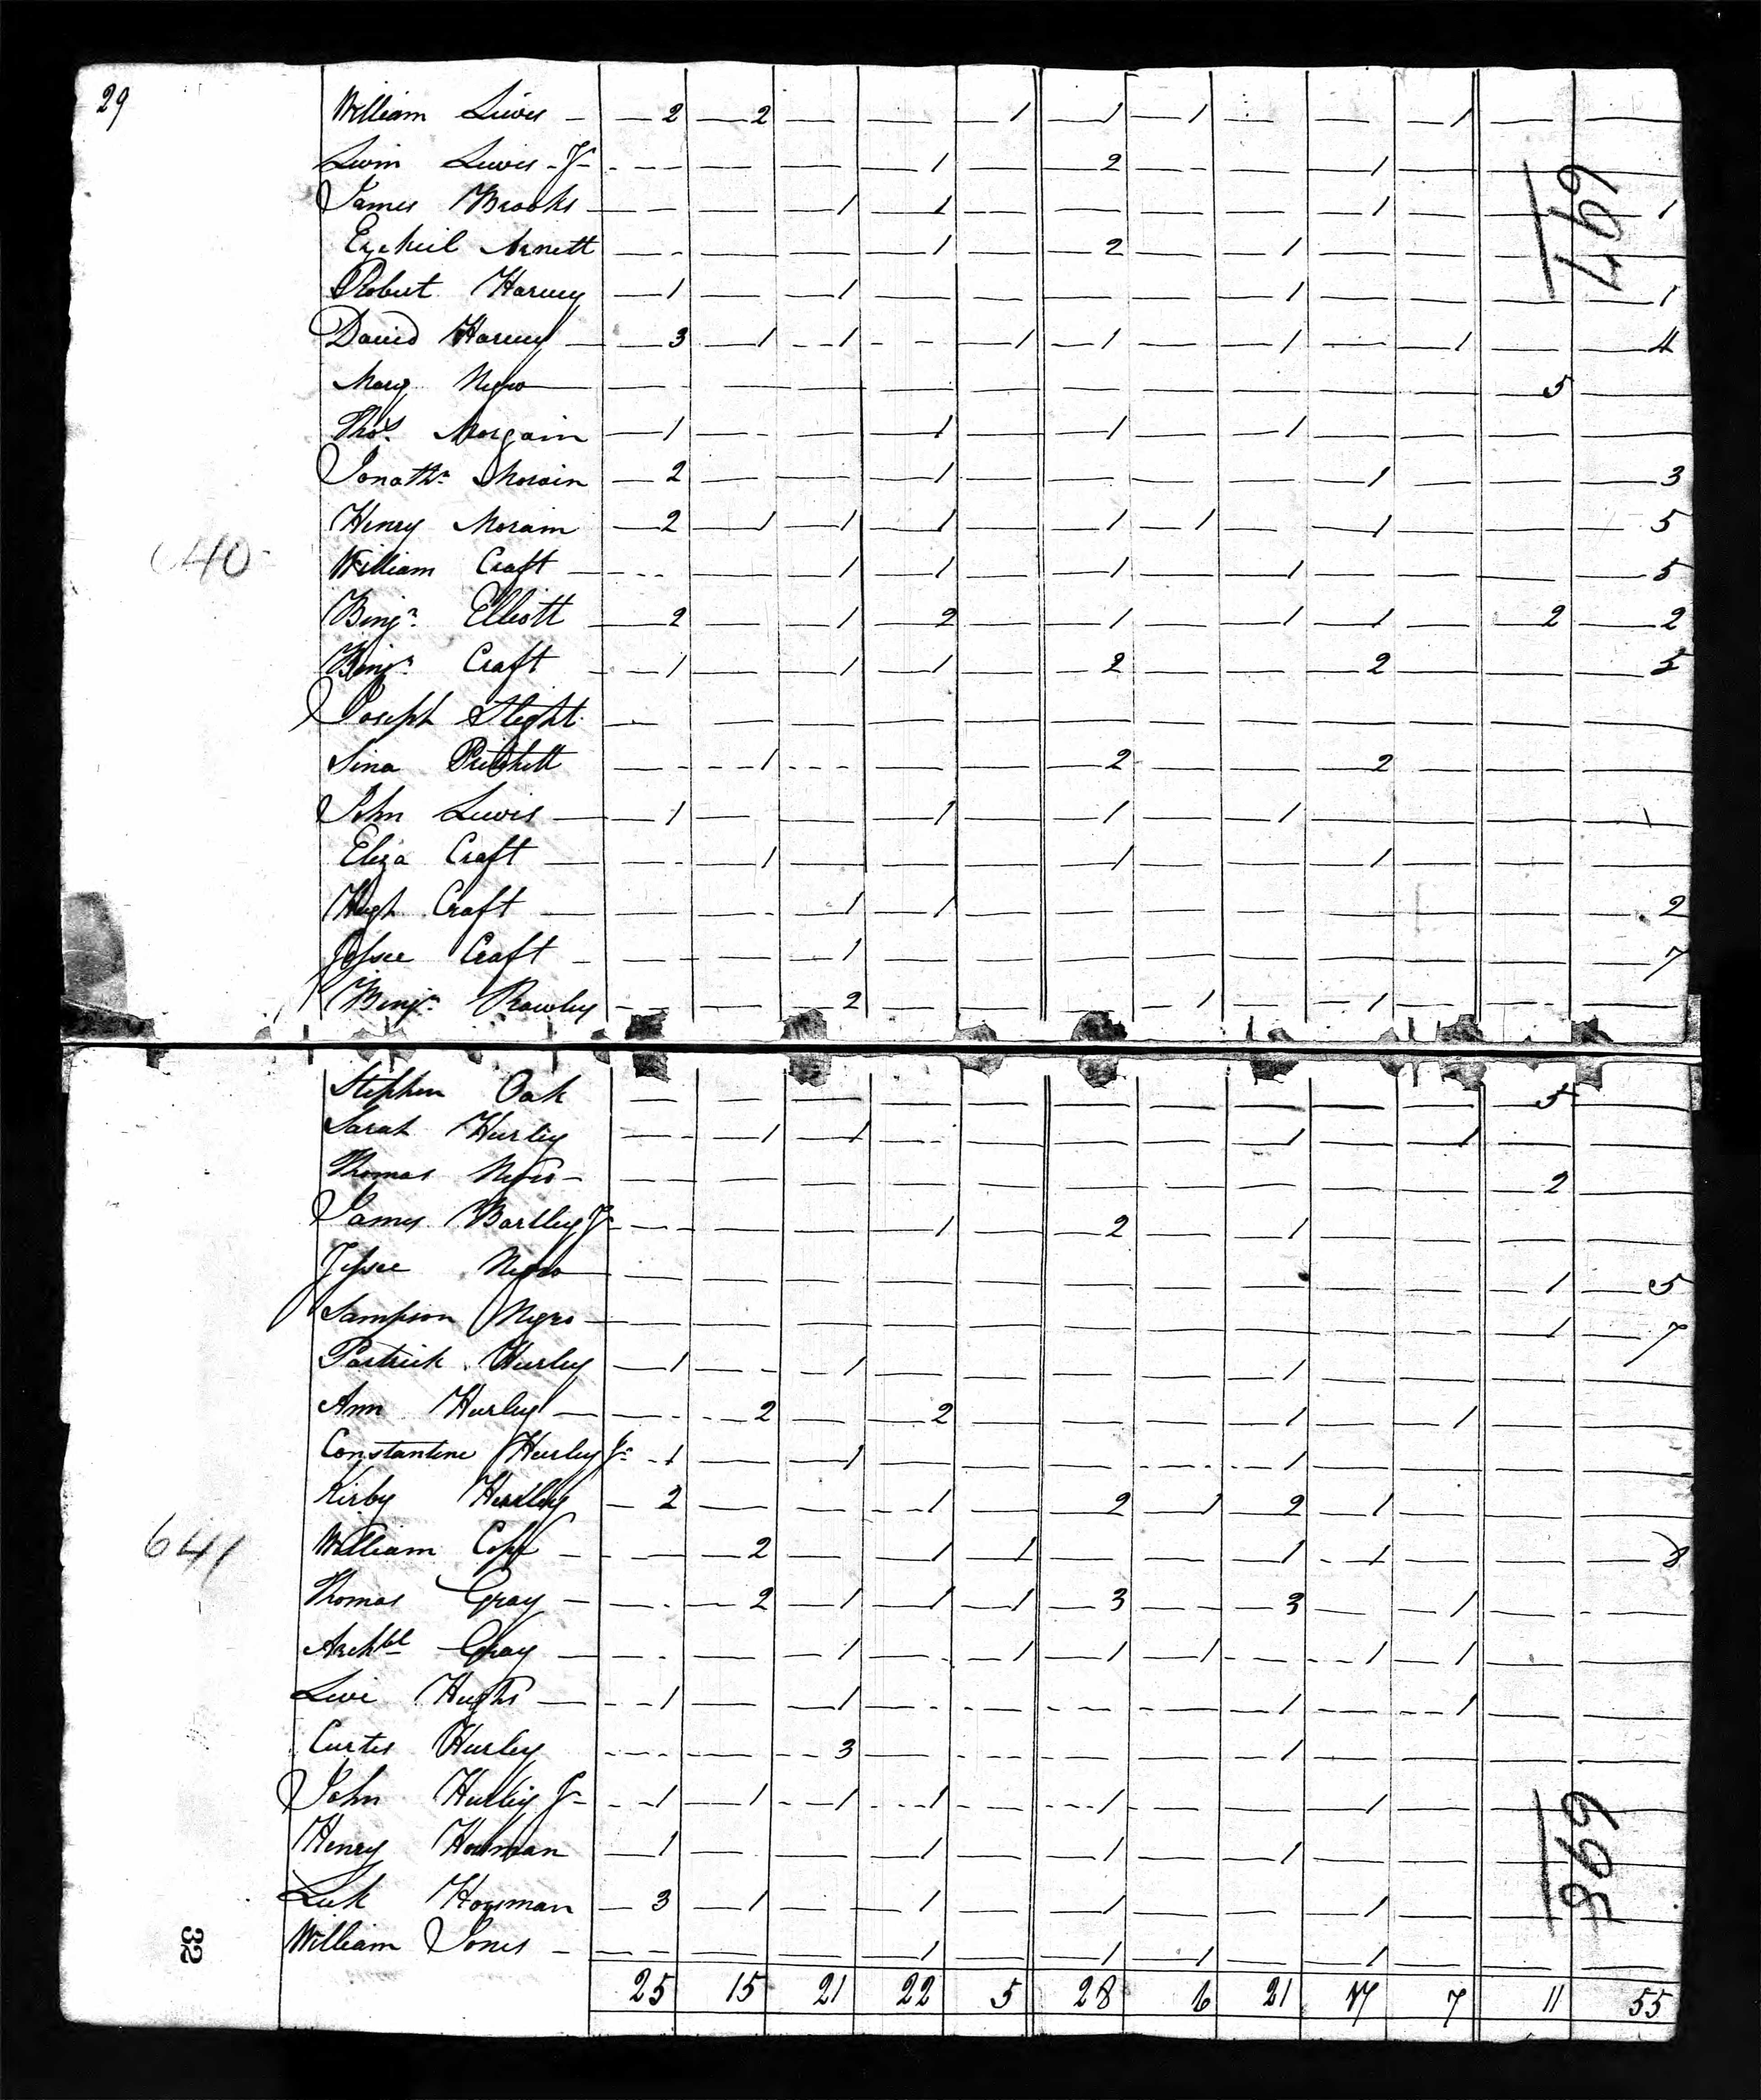 29
William Liwis - 2 2 1 1 1 1
Levin Lewis Jr 1 2 1
James Brooks 1 1 1 1
Ezekiel Arnett 1 2 1
Robert Harvey 1 1 1 1
David Harvey 3 1 1 1 1 1 1 4
Mary Negro 5
Thos. Morgain 1 1 1 1
Jonathn. 2 1 1 3
Henry Morain 2 1 1 1 1 1 1 5
William Craft 1 1 1 1 5
Benjn. Elliott 2 1 2 1 1 1 2 2
Benjn. Craft 1 1 1 2 2 5
Joseph Slight
Sina Pritchett 1 2 2
John Lewis 1 1 1 1 1
Eliza Craft 1 1 1
Hugh Craft 1 1 2
Jessee Craft 1 7
Benjn. Rowley 2 1 1
640
697
Stephen Oak 5
Sarah Hurley 1 1 1 1
Thomas Negro 2
James Bartley Jr 1 2 1
Jessee Negro 1 5
Sampson Negro 1 7
Partrick Hurley 1 1 1
Ann Hurley 2 2 1 1
Constantine Hurley Jr 1 1 1
Kirby Hurley 2 1 2 1 2 1
William 2 1 1 1 1 8
Thomas Gray 2 1 1 1 3 3 1
Archbl Gray 1 1 1 1 1 1
Levi Hughs 1 1 1 1
Curtis Hurley 3 1
John Hurley Jr 1 1 1 1 1 1
Henry 1 1 1 1
3 1 1 1 1
William Jones 1 1 1 1
25 15 21 22 5 28 6 21 17 7 11 55
641
698
32